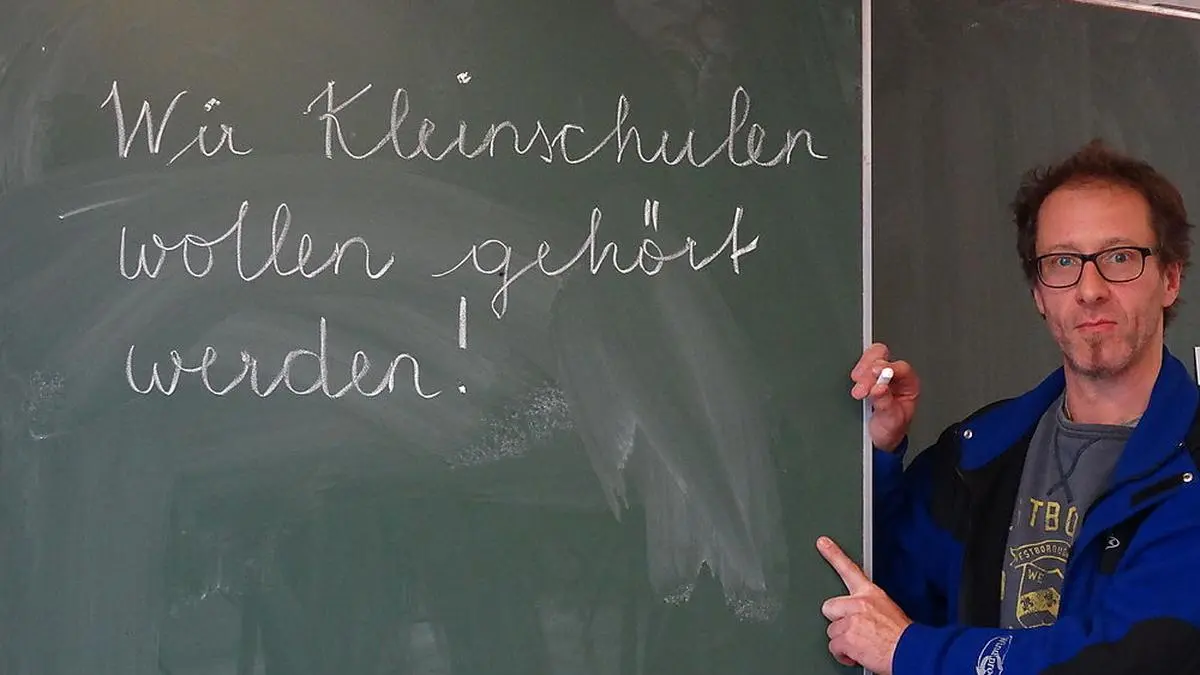 Wir Kleinschulen
wollen gehört
werden!
TBO
ESTBOROUG
WE